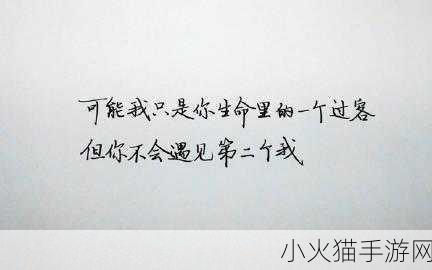 可能我只是你生命里的一个过客
但你不会遇见第二个我
小火猫手游网